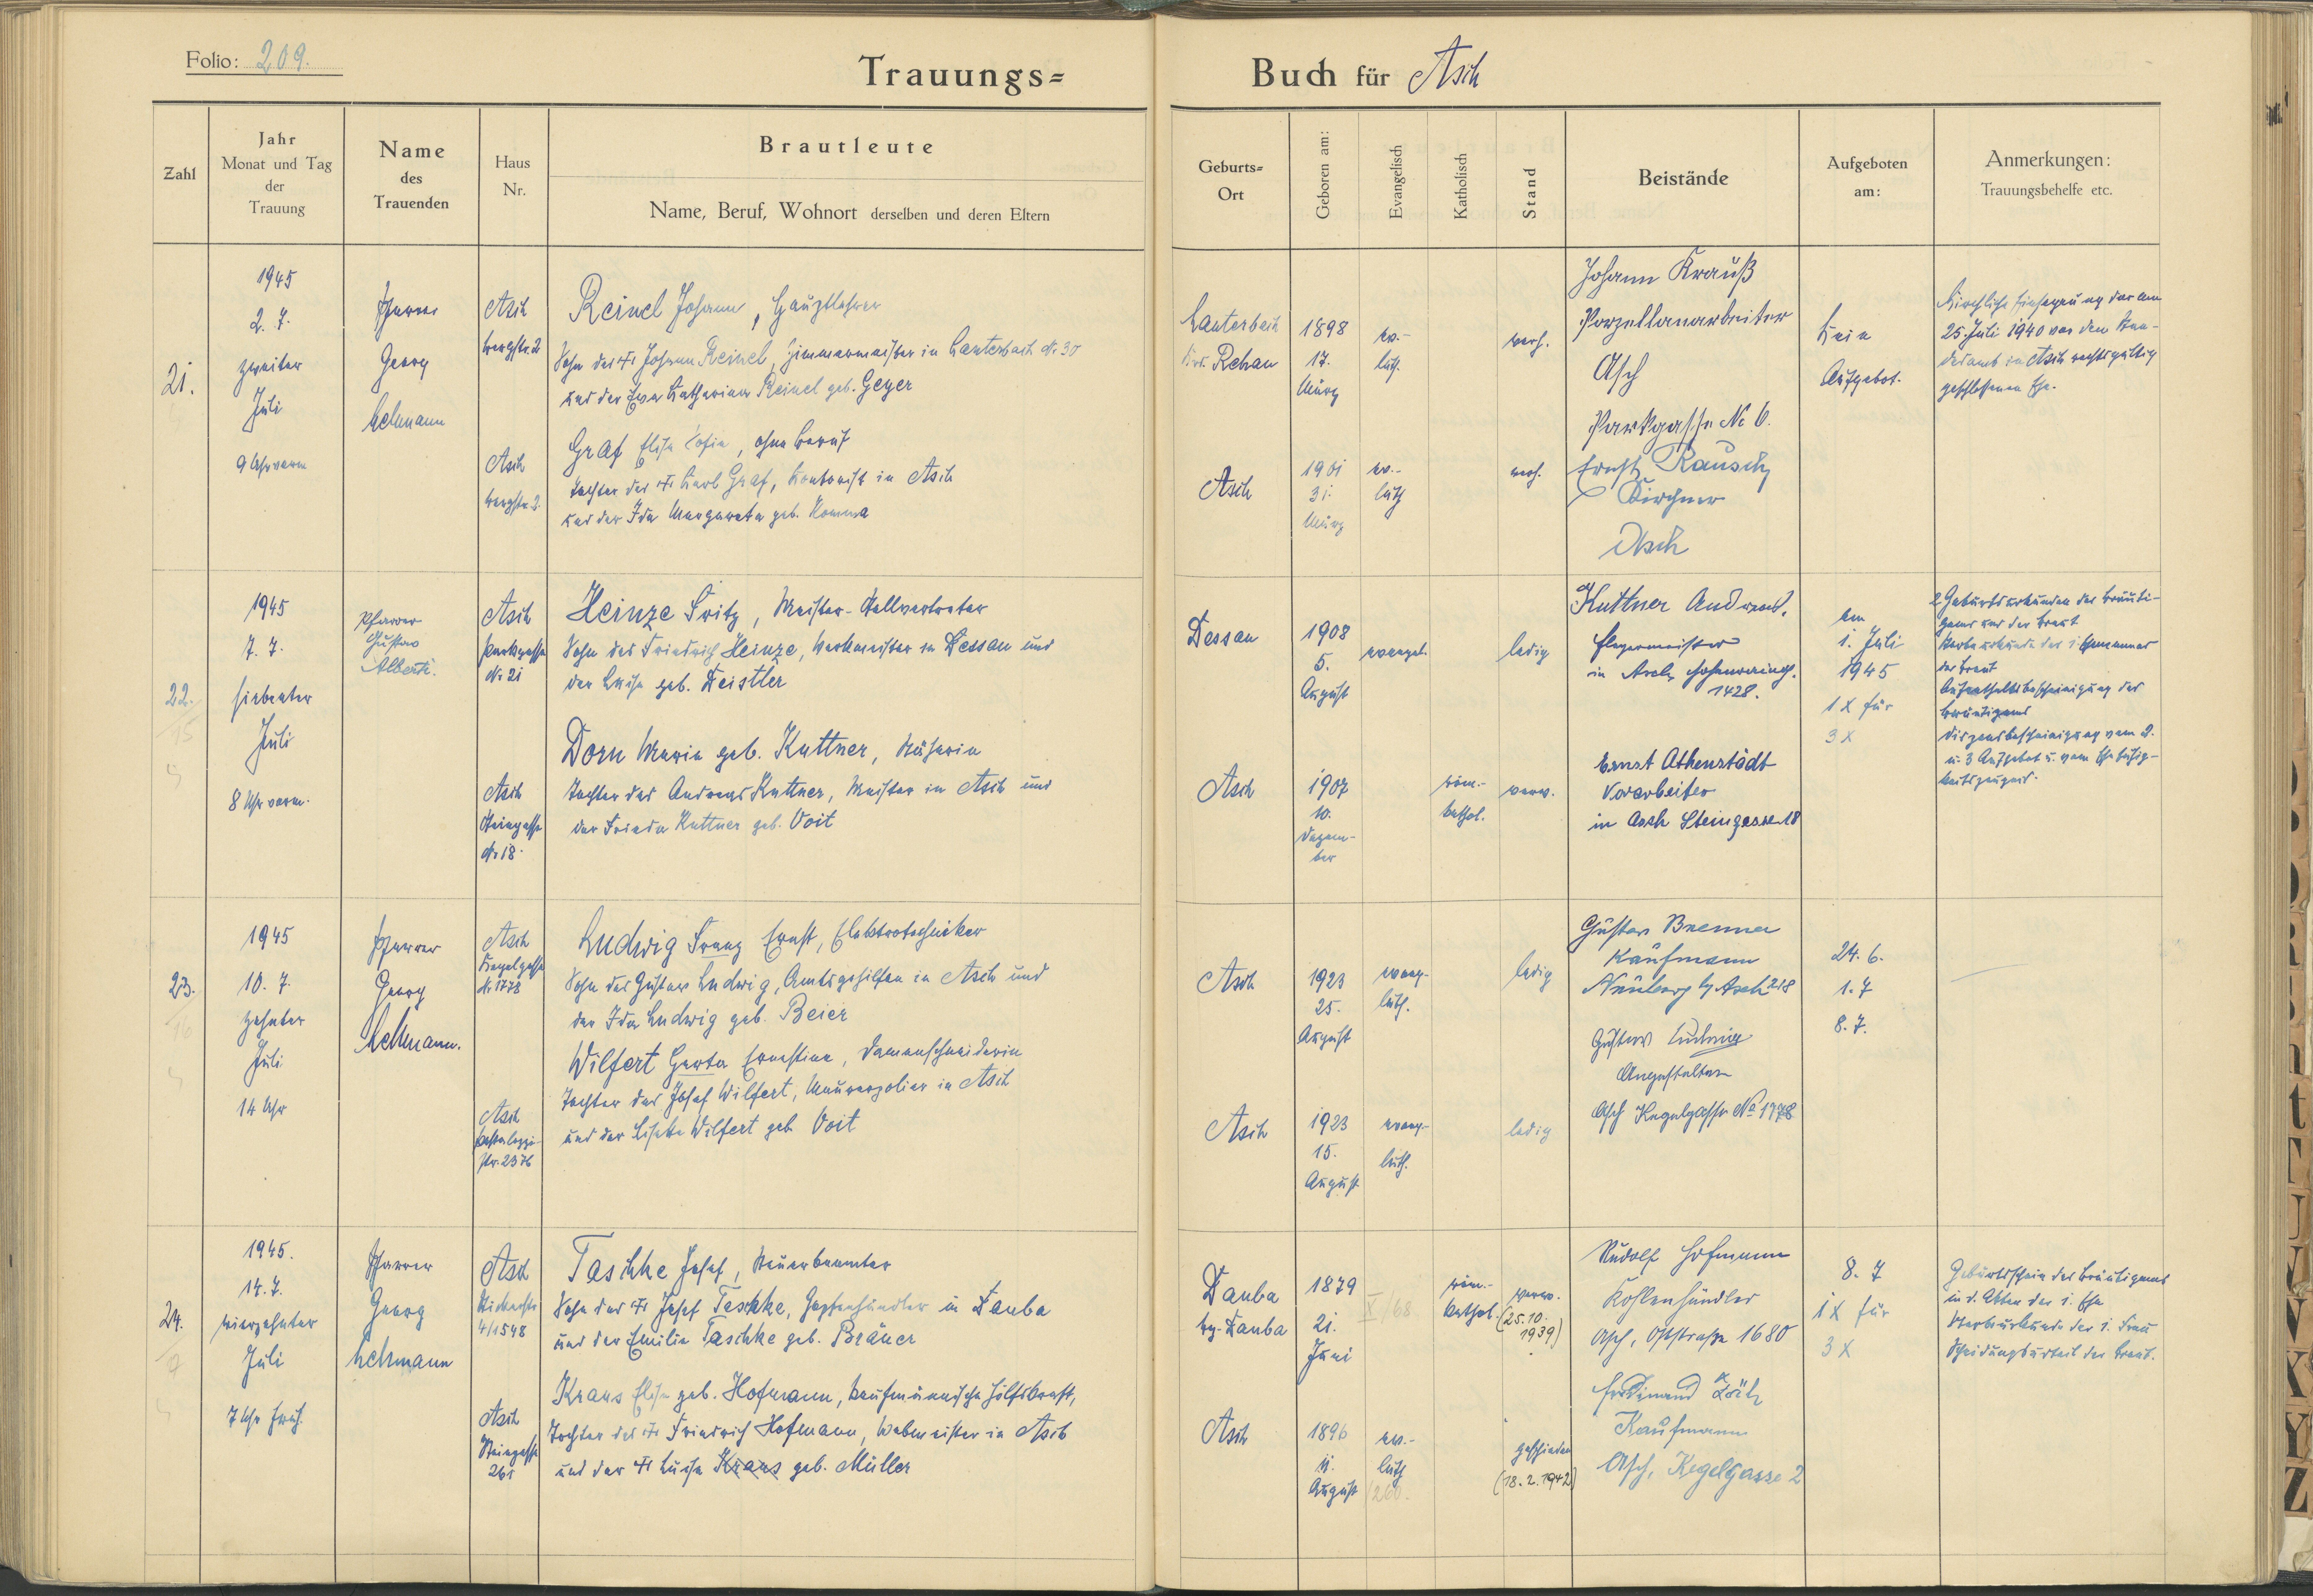 Folio: 209.
Trauungs=
Buch für Asch
Zahl
Jahr
Monat und Tag
der
Trauung
Name
des
Trauenden
Haus
Nr.
Brautleute
Name, Beruf, Wohnort derselben und deren Eltern
Geburts=
Ort
Geboren am:
Evangelisch
Katholisch
Stand
Beistände
Aufgeboten
am:
Anmerkungen:
Trauungsbehelfe etc.
21.
1945
2. 7.
zweiter
Juli
9 Uhr vorm
Pfarrer
Georg
Lehmann
Asch
Bergstr. 2
Reinel Johann, Hauptlehrer
Sohn des Johann Reinel, Zimmermeister in Lauterbach Nr 30
und der Eva Katharina Reinel geb. Geyer
Asch
Bergstr. 2.
Graf Elise Sofie, ohne Beruf
Tochter des Karl Graf, Kontorist in Asch
und der Ida Margareta geb. Komma
Lauterbach
Krs. Rehau
1898
17.
März
ev.-
luth.
verh.
Asch
1901
31.
März
ev.-
luth
verh.
Johann Krauß
Porzellanarbeiter
Asch
Parkgasse No 6.
Ernst Rausch
Kirchner
Asch
Kein
Aufgebot.
Kirchliche Einsegnung der am
25. Juli 1940 vor dem Stan-
desamt in Asch rechtsgültig
geschlossenen Ehe.
22.
15
1945
7. 7.
siebenter
Juli
8 Uhr vorm.
Pfarrer
Gustav
Alberti.
Asch
Parkgasse
Nr 21
Heinze Fritz, Meister-Stellvertreter
Sohn des Friedrich Heinze, Werkmeister in Dessau und
der Luise geb. Deistler
Asch
Steingasse
Nr 18.
Dorn Maria geb. Kuttner, Näherin
Tochter des Andreas Kuttner, Meister in Asch und
der Frieda Kuttner geb. Voit
Dessau
1908
5.
August
evangel.
ledig
Asch
1907
10.
Dezem-
ber
röm.-
kathol.
verw.
Kuttner Andreas.
in Asch
1428.
Ernst Athenstädt
Vorarbeiter
in Asch Steingasse 18
am
1. Juli
1945
1 X für
3 X
2 Geburtsurkunden des Bräuti-
gams und der Braut
Sterbeurkunde des 1. Ehemannes
der Braut
Aufenthaltsbescheinigung des
Bräutigams
Dispensbescheinigung vom 2.
u. 3 Aufgebot u. vom Ehefähig-
keitszeugnis.
23.
16
1945
10. 7.
zehnter
Juli
14 Uhr
Pfarrer
Georg
Lehmann.
Asch
Kegelgasse
Nr 1778
Ludwig Franz Ernst, Elektrotechniker
Sohn des Gustav Ludwig, Amtsgehilfen in Asch und
der Ida Ludwig geb. Beier
Asch
Pestalozzi-
str. 2376
Wilfert Gerta Ernestine, Damenschneiderin
Tochter des Josef Wilfert, Maurerpolier in Asch
und der Lisette Wilfert geb. Voit
Asch
1923
25.
August
evang-
luth.
ledig
Asch
1923
15.
August
evang-
luth.
ledig
Gustav Brenner
Kaufmann
Neuberg b/ Asch 218
Gustav Ludwig
Angestellter
Asch Kegelgasse No 1778
24. 6.
1. 7
8. 7.
24.
1945.
14. 7.
vierzehnter
Juli
7 Uhr früh.
Pfarrer
Georg
Lehmann
Asch
4/1548
Taschke Josef, Steuerbeamter
Sohn des Josef Taschke, Hopfenhändler in Dauba
und der Emilie Taschke geb. Bräuer
Asch
Steingasse
261
Kraus Elise geb. Hofmann, kaufmännische Hilfskraft,
Tochter des Friedrich Hofmann, Webmeister in Asch
und der Luise Kraus geb. Müller
Dauba
bz. Dauba
1879
21.
Juni
X/68.
röm.-
kathol.
verw.
(25.10.
1939)
Asch
1896
11.
August
ev.-
luth
geschieden
(18. 2. 1942)
Rudolf Hofmann
Kohlenhändler
Asch, Oststraße 1680
Ferdinand
Kaufmann
Asch, Kegelgasse 2
8. 7
1 X für
3 X
Geburtsschein des Bräutigams
in d. Akten der 1. Ehe
Sterbeurkunde der 1. Frau
Scheidungsurteil der Braut.